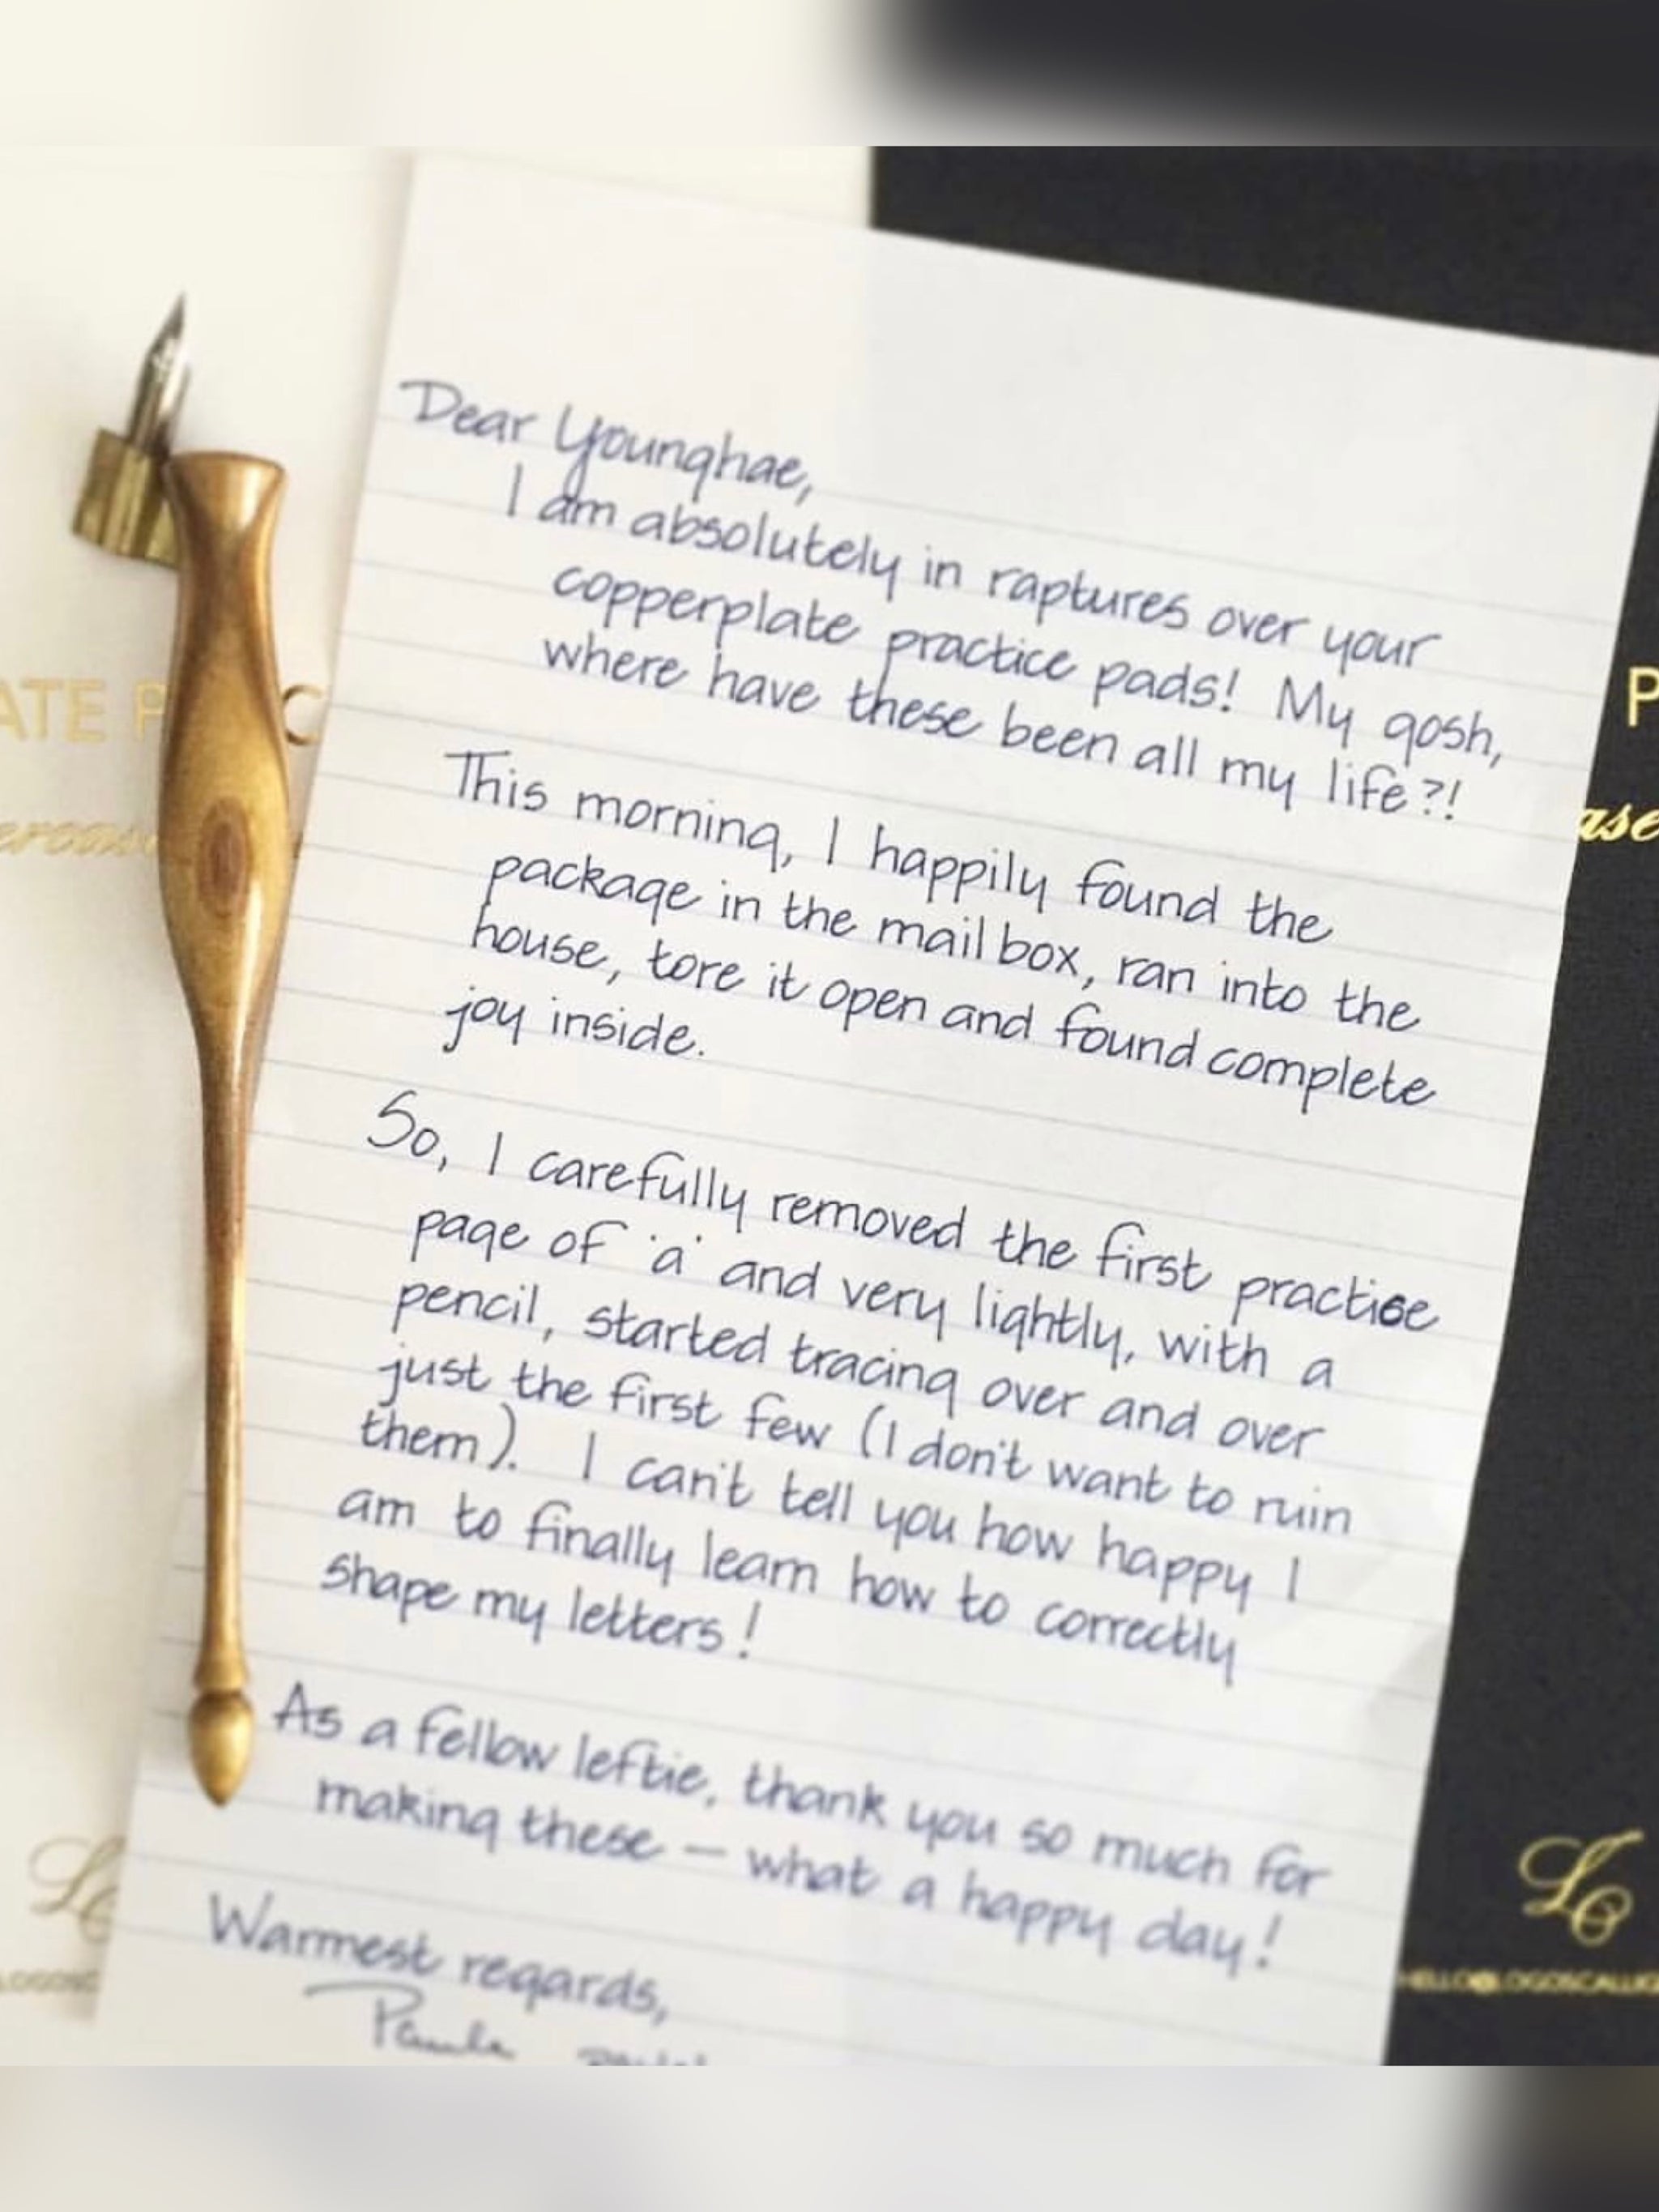 Dear Younghae,
I am absolutely in raptures over your
copperplate practice pads! My gosh,
where have these been all my life?!
This morning, I happily found the
package in the mail box, ran into the
house, tore it open and found complete
joy inside.
So, I carefully removed the first practise
page of 'a' and very lightly, with a
pencil, started tracing over and over
just the first few (I don't want to ruin
them). I can't tell you how happy I
am to finally learn how to correctly
shape my letters!
As a fellow leftie, thank you so much for
making these – what a happy day!
Warmest regards,
Paula
ATE P C
P
ase
LC
LC
HELLO@LOGOSCALLIG